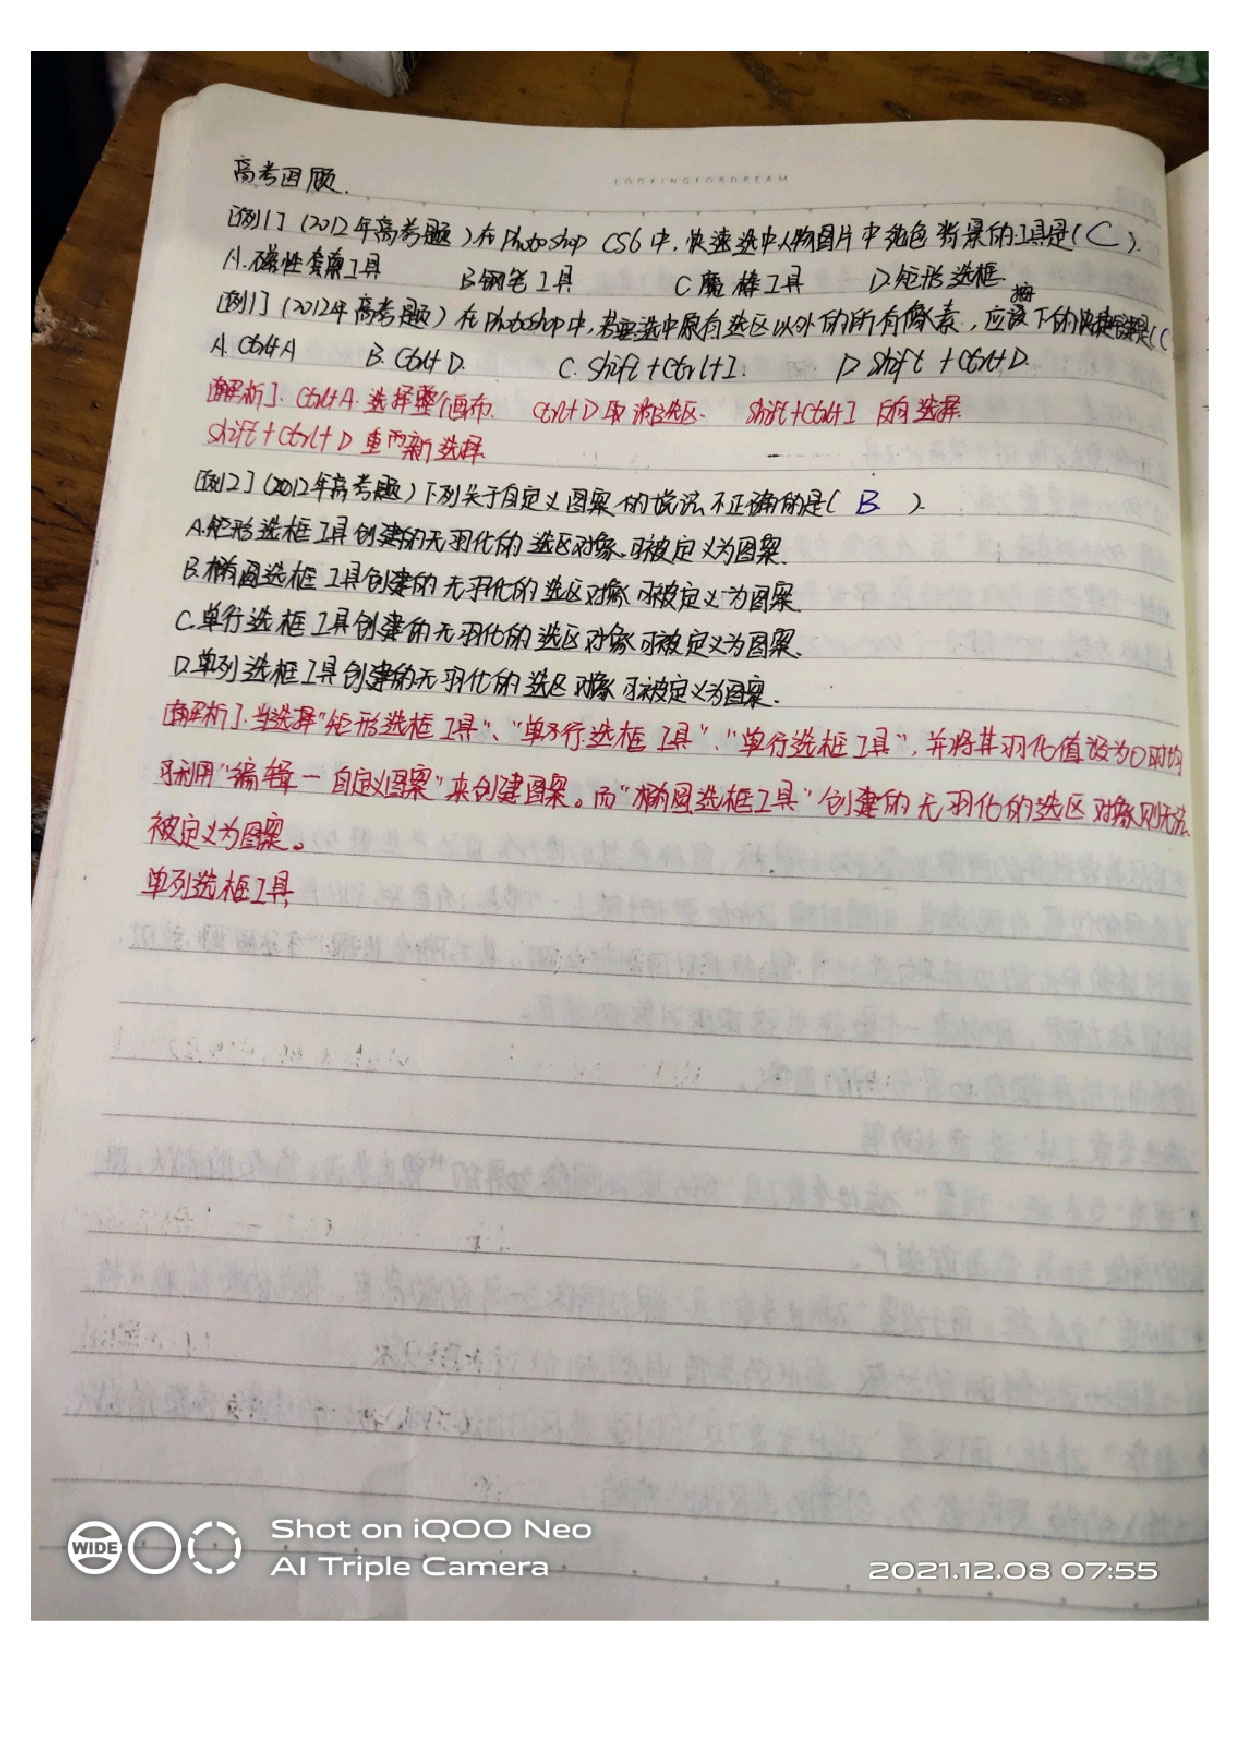 LOOKINGFORDREAM
高考回顾.
[例1] (2012年高考题) 在Photoshop CS6中, 快速选中人物图片中纯色背景的工具是( C ).
A.磁性套索工具 B.钢笔工具 C.魔棒工具 D.矩形选框
[例1] (2012年高考题) 在Photoshop中, 若要选中原有选区以外的所有像素, 应该按下的快捷键是( C
A. Ctrl+A B. Ctrl+D. C. Shift+Ctrl+I. D Shift +Ctrl+D.
[解析]. Ctrl+A 选择整个画布. Ctrl+D 取消选区. Shift+Ctrl+I 反向选择
Shift+Ctrl+D 重而新选择.
[例2] (2012年高考题) 下列关于自定义图案的说法不正确的是( B ).
A.矩形选框工具创建的无羽化的选区对象可被定义为图案.
B.椭圆选框工具创建的无羽化的选区对象可被定义为图案.
C.单行选框工具创建的无羽化的选区对象可被定义为图案.
D.单列选框工具创建的无羽化的选区对象可被定义为图案.
[解析]. 当选择"矩形选框工具"、"单行选框工具"、"单行选框工具", 并将其羽化值设为0时均
可利用"编辑－自定义图案"来创建图案。而"椭圆选框工具"创建的无羽化的选区对象则无法
被定义为图案。
单列选框工具
WIDE
Shot on iQOO Neo
AI Triple Camera
2021.12.08 07:55